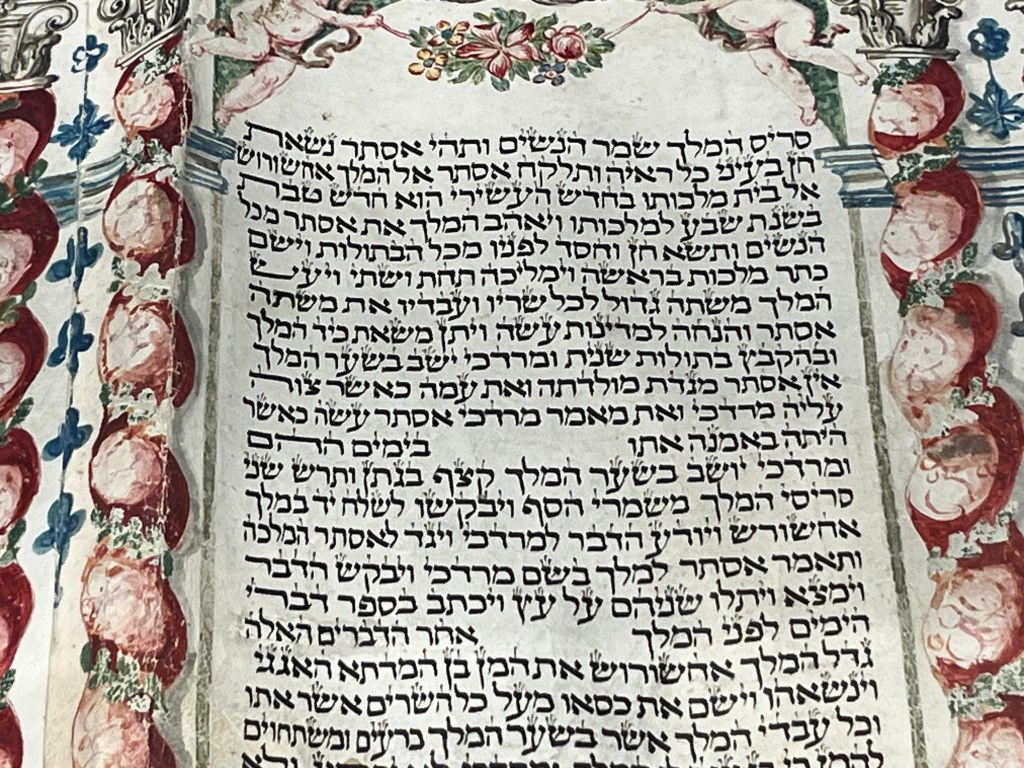 סריס המלך שמר הנשים ותהי אסתר נשאת
חן בעיני כל ראיה ותלקח אסתר אל המלך אחשורוש
אל בית מלכותו בחדש העשירי הוא חדש טבת
בשנת שבע למלכותו ויאהב המלך את אסתר מכל
הנשים ותשא חן וחסד לפניו מכל הבתולות וישם
כתר מלכות בראשה וימליכה תחת ושתי ויעש
המלך משתה גדול לכל שריו ועבדיו את משתה
אסתר והנחה למדינות עשה ויתן משאת כיד המלך
ובהקבץ בתולות שנית ומרדכי ישב בשער המלך
אין אסתר מגדת מולדתה ואת עמה כאשר צוה
עליה מרדכי ואת מאמר מרדכי אסתר עשה כאשר
היתה באמנה אתו בימים ההם
ומרדכי יושב בשער המלך קצף בגתן ותרש שני
סריסי המלך משמרי הסף ויבקשו לשלח יד במלך
אחשורש ויודע הדבר למרדכי ויגד לאסתר המלכה
ותאמר אסתר למלך בשם מרדכי ויבקש הדבר
וימצא ויתלו שניהם על עץ ויכתב בספר דברי
הימים לפני המלך אחר הדברים האלה
גדל המלך אחשורוש את המן בן המדתא האגגי
וינשאהו וישם את כסאו מעל כל השרים אשר אתו
וכל עבדי המלך אשר בשער המלך כרעים ומשתחוים
להמן כי